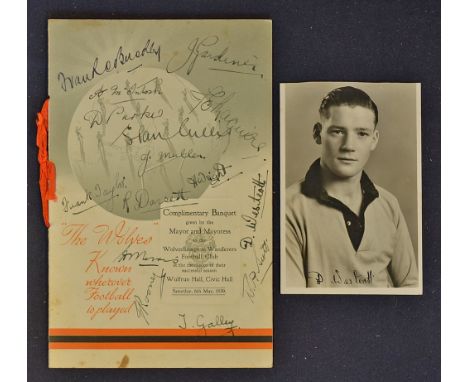 Frank Buckley
J Gardiner
A McIntosh
D Parker
Stan Cullis
J Mullen
Frank Taylor
R Dorsett
A Wright
D. Westcott
Complimentary Banquet
given by the
Mayor and Mayoress
to the
Wolverhampton Wanderers
Football Club
successful season
Wulfrun Hall, Civic Hall
Saturday, 6th May, 1939.
"The Wolves"
Known
wherever
Football
is played
D Morris
T. Galley
D. Westcott